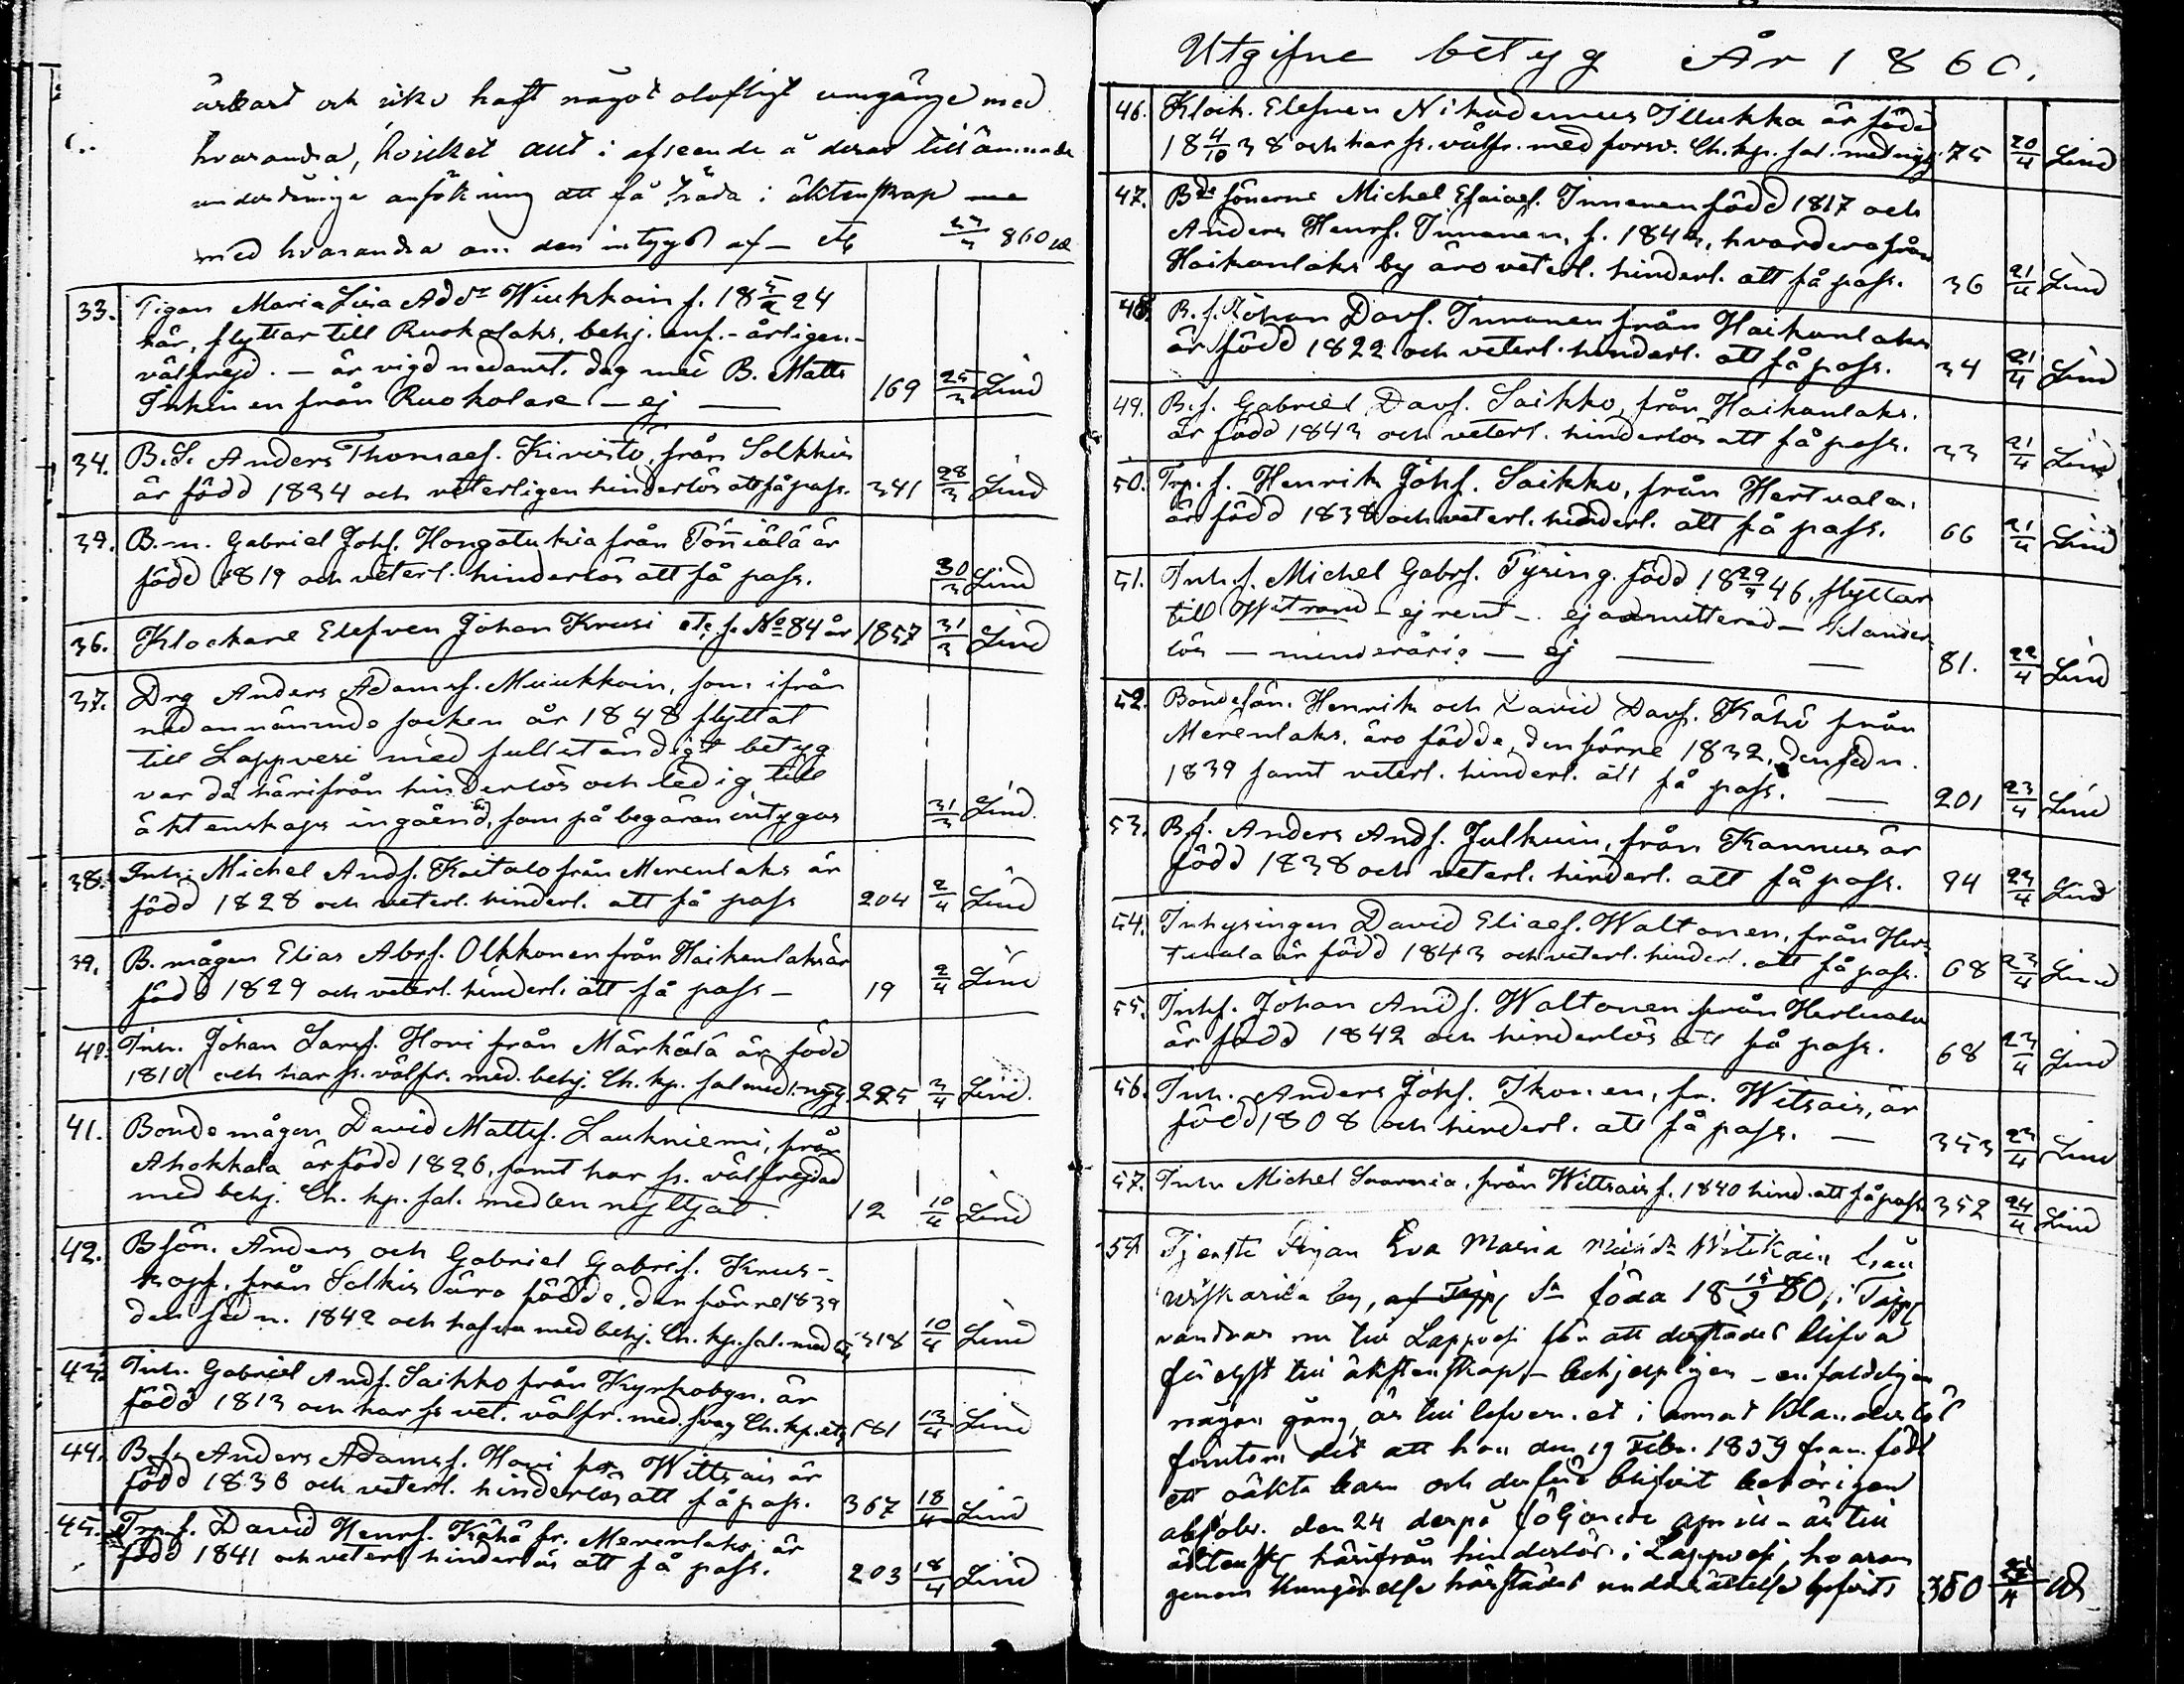 och icke haft något olofligt umgänge med
hvarandra, hvilket allt i afseende å deras tillämnade
underdåniga ansökning att få träda i äktenskap
med hvarandra om den intygas af - etc 860
33. Pigan Maria Lisa Addr Wiukkain f. 18 5/2 24
här, flyttar till Ruokolaks, behj. enf. - årligen -
välfrejd. - är vigd nedanst. dag med B. Matts
Inkinen från Ruokolaks - ej — 169 25/3 Lind
34. B.S. Anders Thomaes. Kivistö, från Solkkis
är född 1834 och veterligen hinderlös att få pass. 341 28/3 Lind
35. B.m. Gabriel Johs. Hongatukia från Tönniälä är
född 1819 och veterl. hinderlös att få pass. 30/3 Lind
36. Klockare Elefven Johan Krusi etc f. No 84 år 1857 31/3 Lind
37. Drg Anders Adamsf. Muukkoin, som ifrån
nedannämnde socken år 1848 flyttat
till Lappvesi med fullständigt betyg
var då härifrån hinderlös och ledig till
äktenskaps ingående, som på begäran intygas 31/3 Lind.
38. Inh. Michel Ands. Kaitalo från Merenlaks är
född 1828 och veterl. hinderl. att få pass 204 2/4 Lind
39. B. mågen Elias Abrs. Olkkonen från Haikanlaks är
född 1829 och veterl. hinderl. att få pass - 19 2/4 Lind
40. Inh. Johan Larss. Hovi från Märkälä är född
1810 och har fr. välfr. med. behj. Ch. kp. sal. med. nytj. 225 3/4 Lind.
41. Bonde mågen David Mattss. Laukniemi, från
Ahokkala är född 1826, samt har fr. välfrejdad
med behj. Ch. kp. sal. medlen nyttjat. 12 10/4 Lind
42. B sön. Anders och Gabriel Gabriels. Krus-
kopf, från Solkis äro födde, den förre 1839
den sedn. 1842 och hafva med behj. Ch. kp. sal. med 318 10/4 Lind
43. Inh. Gabriel Ands. Saikko från Kyrkobyn, är
född 1813 och har fr vet. välfr. med. svag Ch. kp. etc 181 13/4 Lind
44. B.s. Anders Adamss. Hovi fr. Wittsais är
född 1838 och veterl. hinderlös att få pass. 367 18/4 Lind
45. Trp. f. David Henrs. Kähä fr. Merenlaks, är
född 1841 och veterl hinderlös att få pass. 203 18/4 Lind
Utgifne betyg År 1860.
46. Klock. Elefven Nikodemus Illukka är född
18 4/10 38 och har fr. välfr. med försv. Ch. kp. sal. med nytj. 75 20/4 Lind
47. Bde sönerne Michel Esaiaes. Innanen född 1817 och
Anders Henrs. Innanen, f. 1843, hvardera från
Haikanlaks by äro veterl. hinderl. att få pass. 36 21/4 Lind
48. B.f. Johan Davs. Innanen från Haikanlaks
är född 1822 och veterl. hinderl. att få pass. 34 21/4 Lind
49. B.f. Gabriel Davs. Saikko, från Haikanlaks.
är född 1843 och veterl. hinderlös att få pass. 33 21/4 Lind
50. Trp. f. Henrik Johs. Saikko, från Hertuala.
är född 1838 och veterl. hinderl. att få pass. 66 21/4 Lind
51. Inh. f. Michel Gabrs. Tysing. född 18 29/9 46. flyttar
till Witrand - ej rent - ej admitterad - klander-
lös - minderårig - ej — 81. 22/4 Lind
52. Bondesön. Henrik och David Davs. Kähö från
Merenlaks. äro födde, den förre 1832, den sedn.
1839 samt veterl. hinderl. att få pass. — 201 23/4 Lind
53. B.f. Anders Ands. Julkuin, från Kannus är
född 1838 och veterl. hinderl. att få pass. 94 23/4 Lind
54. Inhysingen David Eliaes. Waltonen, från Her-
tuala är född 1843 och veterl. hinderl. att få pass. 68 23/4 Lind
55. Inhs. Johan Ands. Waltonen från Hertuala
är född 1842 och hinderlös att få pass. 68 23/4 Lind
56. Inh. Anders Johs. Ikonen, fr. Witsais, är
född 1808 och hinderl. att få pass. — 353 23/4 Lind
57. Inh. Michel Saarnia, från Wittsais f. 1840 hind. att få pass 352 24/4 Lind
58 Tjenste Pigan Eva Maria från
by, födda 18 i
vandrar nu till Lappvesi för att derstädes blifva
till äktenskap - behjelpligen - enfaldeligen
någon gång, är till lefvernet i annat klanderlös
förutom det att hon den 19 Febr. 1859 fram född
ett oäkta barn och derför blifvit behörigen
absolv. den 24 derpå följande april - är till
äktensk. härifrån hinderlös i Lappvesi, hvarom
genom kungörelse härstädes underrättelse 350 /4